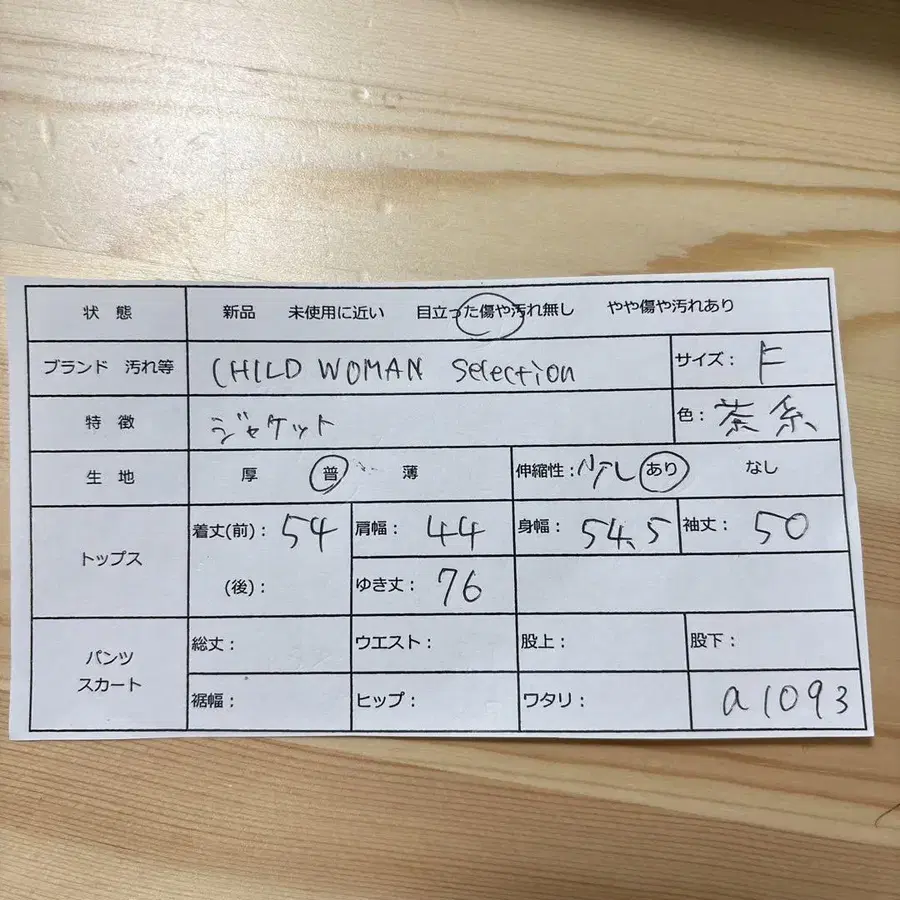 状 態 新品 未使用に近い 目立った傷や汚れ無し やや傷や汚れあり
ブランド 汚れ等 CHILD WOMAN Selection サイズ: F
特 徴 ジャケット 色: 茶系
生 地 厚 普 薄 伸縮性: あり なし
トップス 着丈(前): 54 肩幅: 44 身幅: 54.5 袖丈: 50
(後): ゆき丈: 76
パンツ スカート 総丈: ウエスト: 股上: 股下:
裾幅: ヒップ: ワタリ: a1093